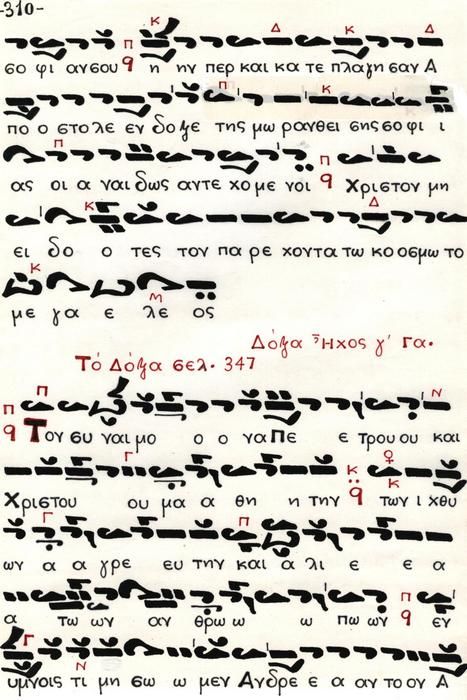 -310-
σο φι αν σου η ην περ και κα τε πλαγη σαν Α
πο ο στο λε εν δο ξε της μω ρανθει σης σο φι ι
ας οι α ναι δως αντε χο με νοι Χριστον μη
ει δο ο τες τον πα ρε χοντα τω κο οσμω το
με γα ε λε ος
Δόξα Ἦχος γ' Γα.
Τό Δόξα σελ. 347
Τον συ ναι μο ο ο να Πε ε τρου ου και
Χριστου ου μα α θη η την των ι χθυ
ων α α γρε ευ την και α λι ε ε α
α τω ων αν θρω ω ω πω ων εν
υμνοις τι μη σω ω μεν Ανδρε ε α αν το ον Α